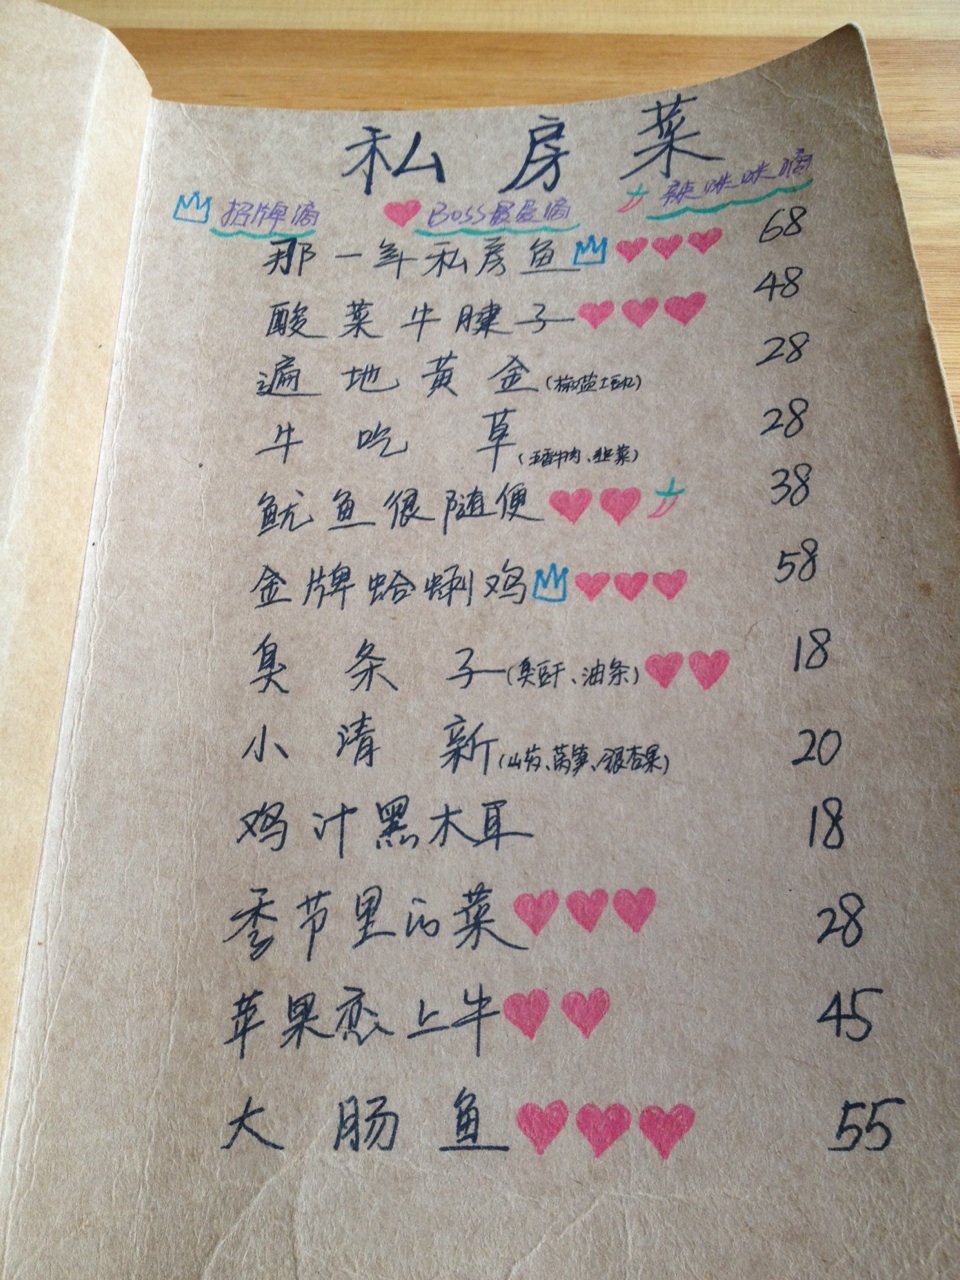 私房菜
招牌滴 Boss最爱滴 辣咪咪滴
那一年私房鱼 68
酸菜牛腱子 48
遍地黄金(椒盐玉米) 28
牛吃草(五香牛肉、韭菜) 28
鱿鱼很随便 38
金牌蛤蜊鸡 58
臭条子(臭豆干、油条) 18
小清新(山药、莴笋、银杏果) 20
鸡汁黑木耳 18
季节里的菜 28
苹果恋上牛 45
大肠鱼 55